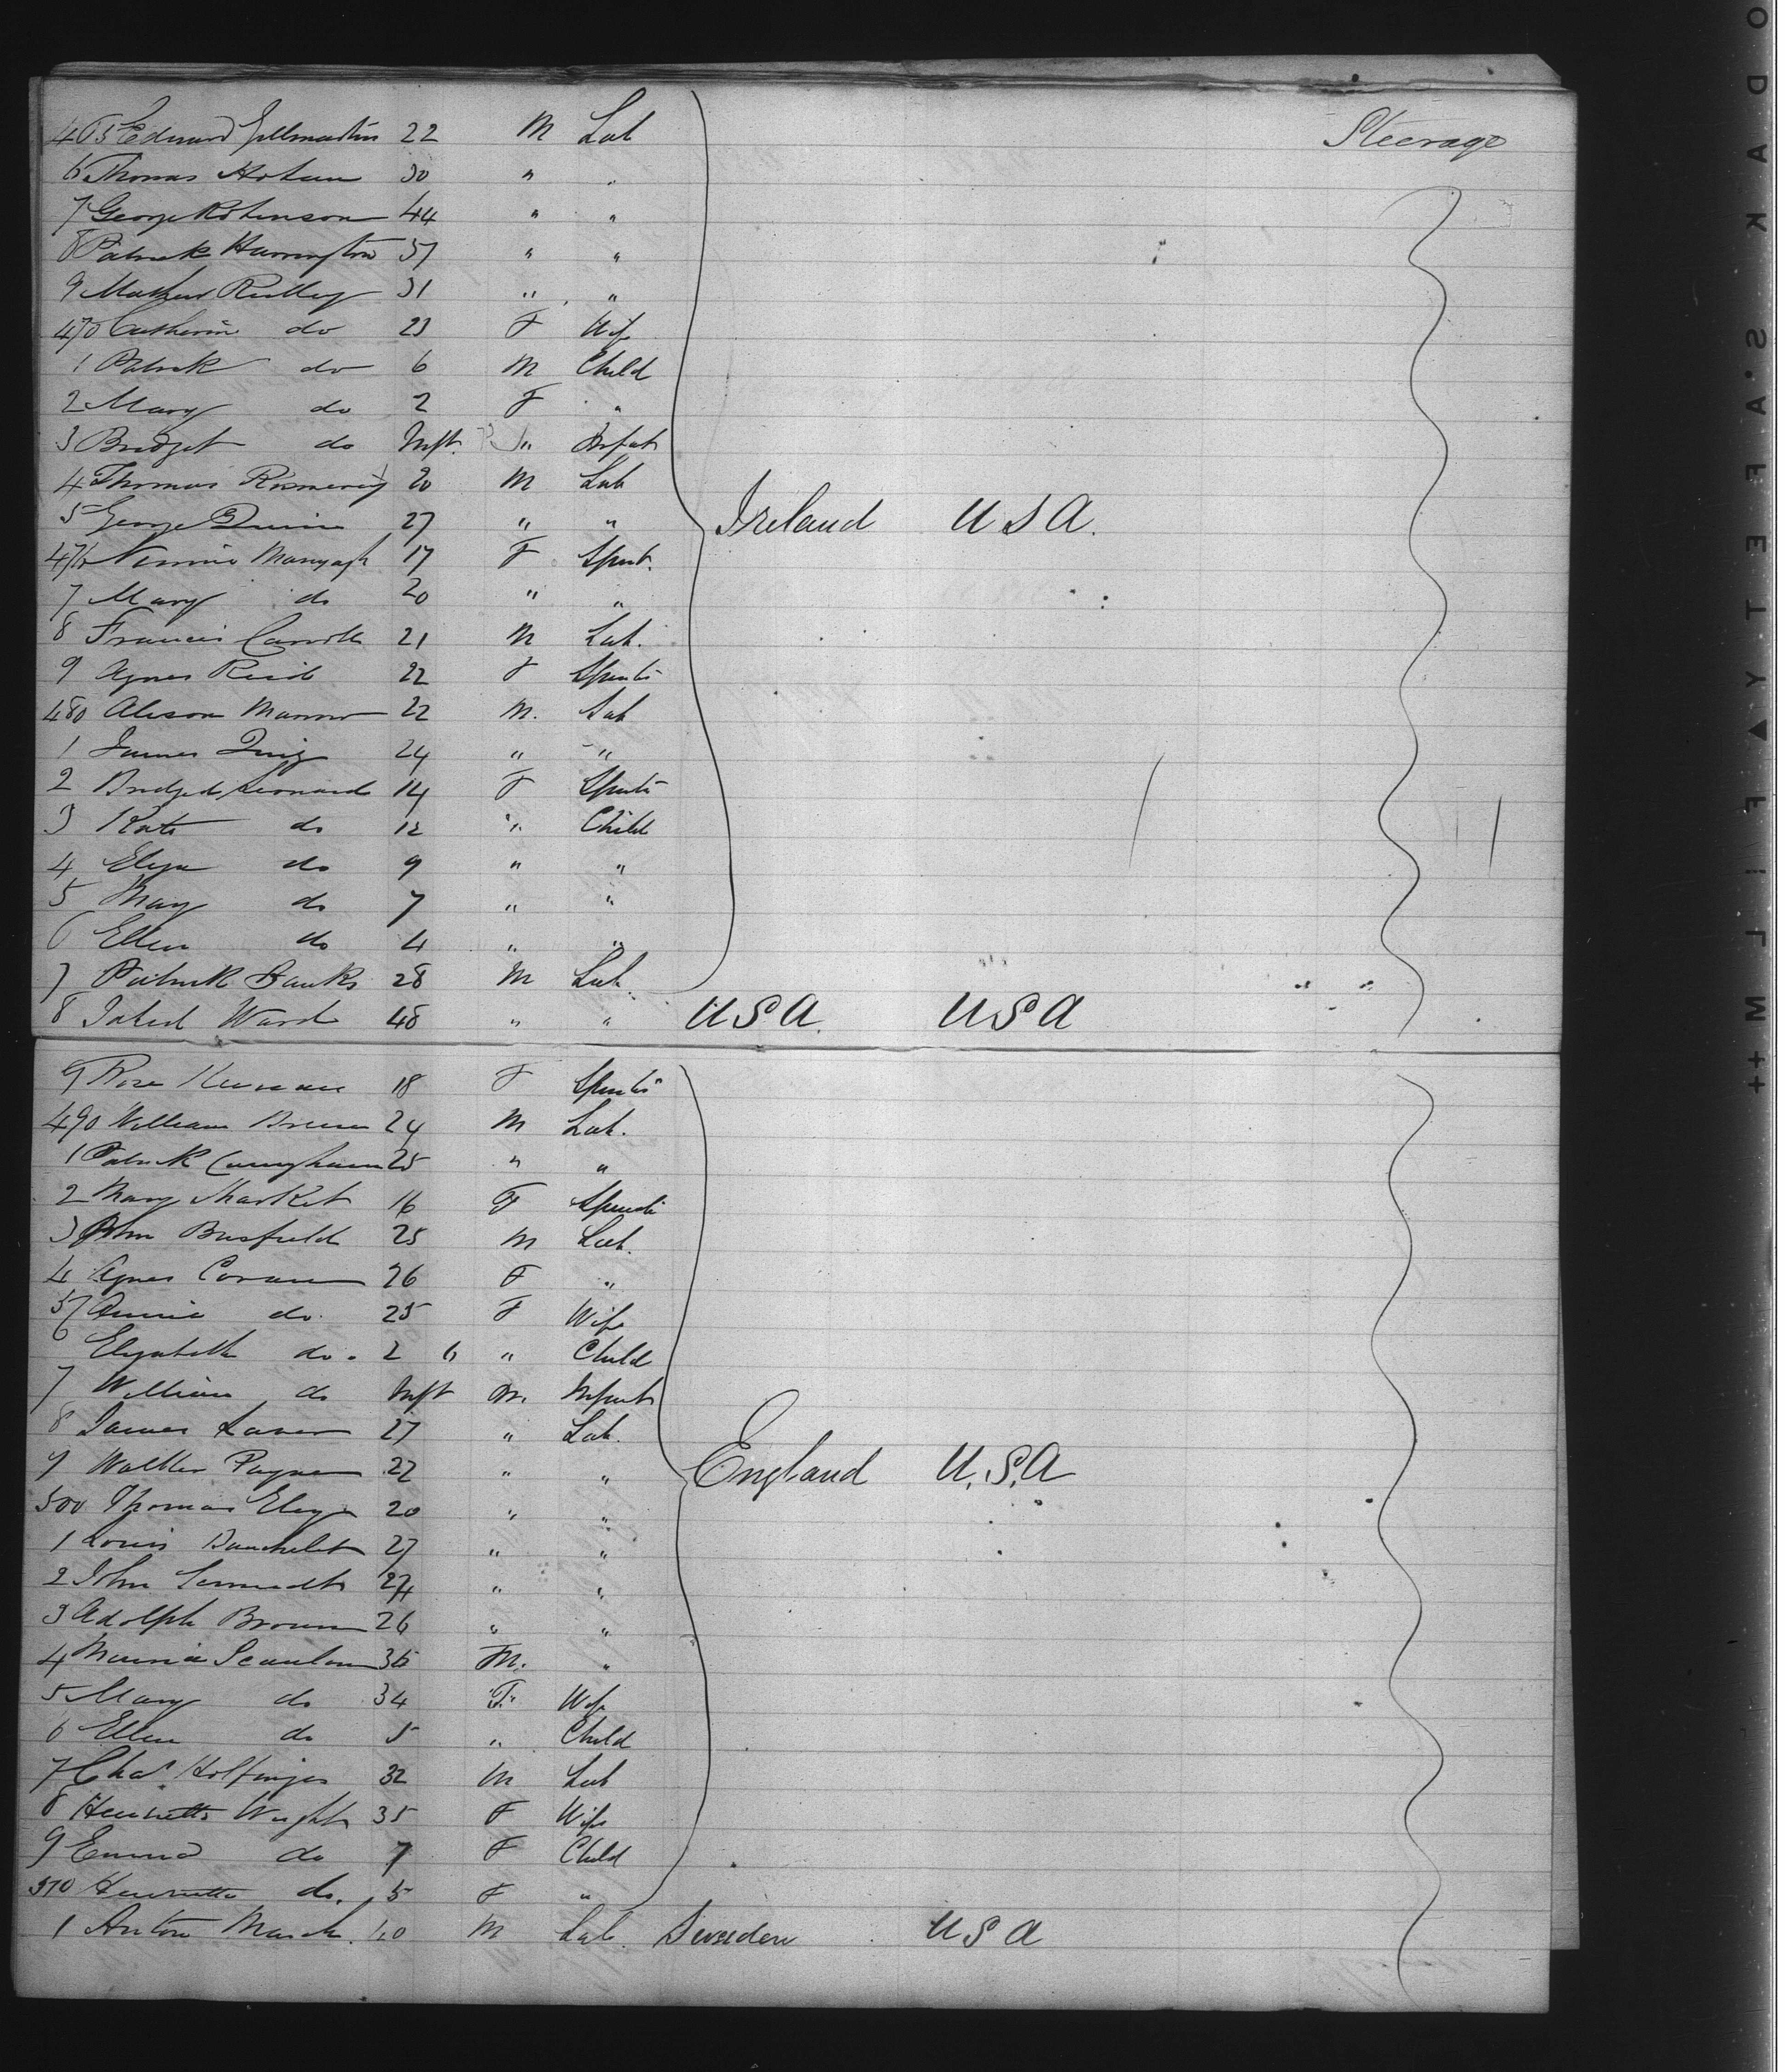 465 Edward Gillmartin 22 M Lab Steerage
6 Thomas 30 " "
7 George Robinson 44 " "
8 Patrick Harrington 57 " "
9 Mathew Reilley 31 " "
470 Catherine do 23 F Wife
1 Patrick do 6 M Child
2 Mary do 2 F "
3 Bridget do Inft. " Infant
4 Thomas 20 M Lab
5 George Quinn 27 " " Ireland U S A.
476 17 F Spinst.
7 Mary do 20 " "
8 Francis Carroll 21 M Lab.
9 Agnes Reid 22 F Spinstr
480 22 M. Lab
1 James 24 " "
2 Bridget Leonard 14 F Spinstr
3 Kate do 12 " Child
4 Eliza do 9 " "
5 Mary do 7 " "
6 Ellen do 4 " "
7 Patrick Banks 28 M Lab
8 Ward 48 " " U S A. U S A
9 Rose 18 F Spinstr
490 William 24 M Lab.
1 Patrick Cunningham 25 " "
2 Mary Market 16 F Spinstr
3 John Busfield 25 M Lab.
4 Agnes 26 F "
5 Annie do. 25 F Wife
6 Elizabeth do. 2 6 " Child
7 William do Inft M. Infant
8 James 27 " Lab.
9 Walter Payne 22 " " England U.S.A
500 Thomas 20 " "
1 Louis 27 " "
2 John 24 " "
3 Adolph Brown 26 " "
4 Scanlon 36 M. "
5 Mary do 34 F. Wife
6 Ellen do 5 " Child
7 Chas 32 M Lab
8 Henrietta Wright 35 F Wife
9 Emma do 7 F Child
510 Henrietta do. 5 F "
1 Anton M Lab. Sweden U S A
KODAK S.AFETY FILM ++